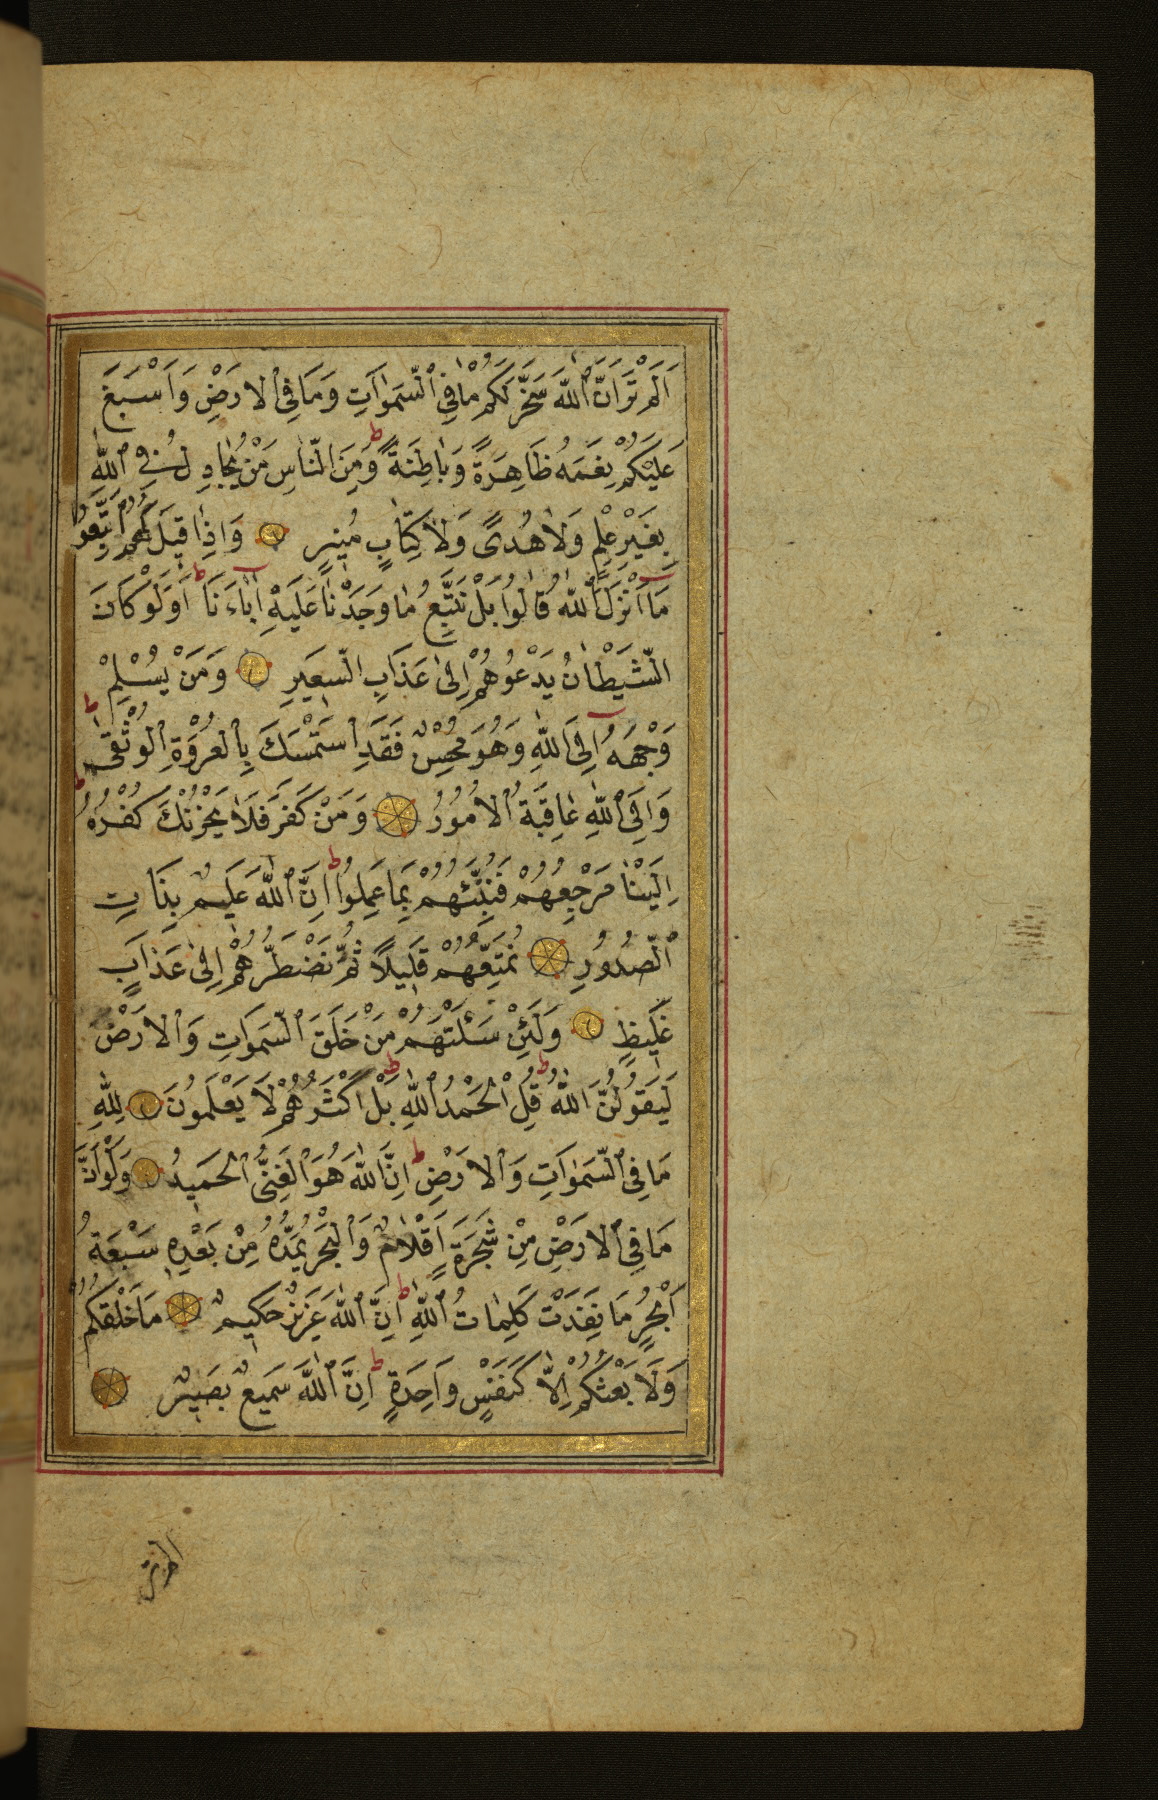 اَلَمْ تَرَ اَنَّ ٱللّٰهَ سَخَّرَ لَكُمْ مَا فِى ٱلسَّمٰوَاتِ وَمَا فِى ٱلْاَرْضِ وَاَسْبَغَ
عَلَيْكُمْ نِعَمَهُ ظَاهِرَةً وَبَاطِنَةً ط وَمِنَ النَّاسِ مَنْ يُجَادِلُ فِى ٱللّٰهِ
بِغَيْرِ عِلْمٍ وَلَا هُدًى وَلَا كِتَابٍ مُنِيرٍ وَاِذَا قِيلَ لَهُمُ ٱتَّبِعُوا
مَا اَنْزَلَ ٱللّٰهُ قَالُوا بَلْ نَتَّبِعُ مَا وَجَدْنَا عَلَيْهِ اٰبَاءَنَا ط اَوَلَوْ كَانَ
الشَّيْطَانُ يَدْعُوهُمْ اِلٰى عَذَابِ السَّعِيرِ وَمَنْ يُسْلِمْ
وَجْهَهُ اِلَى ٱللّٰهِ وَهُوَ مُحْسِنٌ فَقَدِ ٱسْتَمْسَكَ بِٱلْعُرْوَةِ ٱلْوُثْقٰى ط
وَاِلَى ٱللّٰهِ عَاقِبَةُ ٱلْاُمُورُ وَمَنْ كَفَرَ فَلَا يَحْزُنْكَ كُفْرُهُ ط
اِلَيْنَا مَرْجِعُهُمْ فَنُنَبِّئُهُمْ بِمَا عَمِلُوا ط اِنَّ ٱللّٰهَ عَلِيمٌ بِذَاتِ
ٱلصُّدُورِ نُمَتِّعُهُمْ قَلِيلًا ثُمَّ نَضْطَرُّهُمْ اِلٰى عَذَابٍ
غَلِيظٍ وَلَئِنْ سَئَلْتَهُمْ مَنْ خَلَقَ ٱلسَّمٰوَاتِ وَٱلْاَرْضَ
لَيَقُولُنَّ ٱللّٰهُ ط قُلِ ٱلْحَمْدُ لِلّٰهِ ط بَلْ اَكْثَرُهُمْ لَا يَعْلَمُونَ لِلّٰهِ
مَا فِى ٱلسَّمٰوَاتِ وَٱلْاَرْضِ ط اِنَّ ٱللّٰهَ هُوَ ٱلْغَنِىُّ ٱلْحَمِيدُ وَلَوْ اَنَّ
مَا فِى ٱلْاَرْضِ مِنْ شَجَرَةٍ اَقْلَامٌ وَٱلْبَحْرُ يَمُدُّهُ مِنْ بَعْدِهِ سَبْعَةُ
اَبْحُرٍ مَا نَفِدَتْ كَلِمَاتُ ٱللّٰهِ ط اِنَّ ٱللّٰهَ عَزِيزٌ حَكِيمٌ مَا خَلْقُكُمْ
وَلَا بَعْثُكُمْ اِلَّا كَنَفْسٍ وَاحِدَةٍ ط اِنَّ ٱللّٰهَ سَمِيعٌ بَصِيرٌ
الم تر